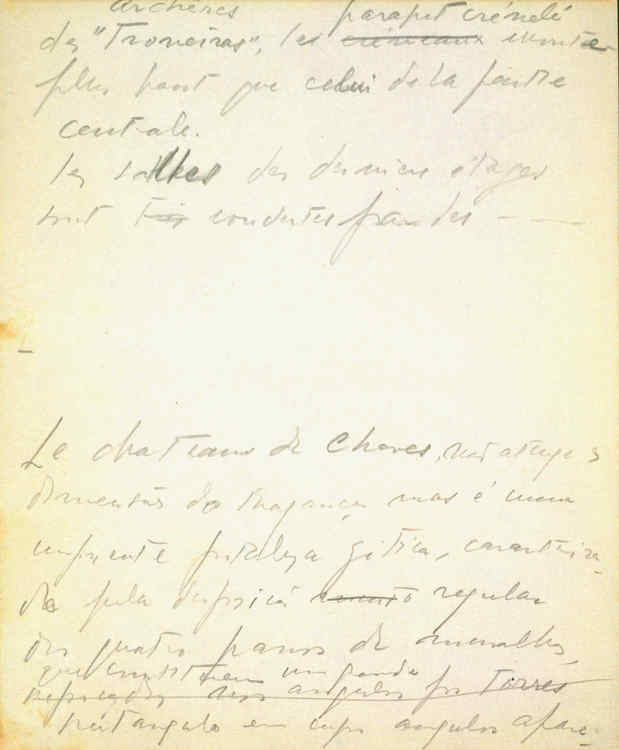 archères parapet crénelé
des "Troneiras", les créneaux monte
plus haut que celui de la partie
centrale.
les salles des derniers étages
sont
Le chateaux de Chaves, não atinge as
dimensões de Bragança, mas é uma
imponente fortaleza gótica, caracteriza-
da pela disposição muito regular
dos quatro panos de muralha,
que constituem um grande
reforçados nos angulos por torres
rectangulo em cujos angulos apare-